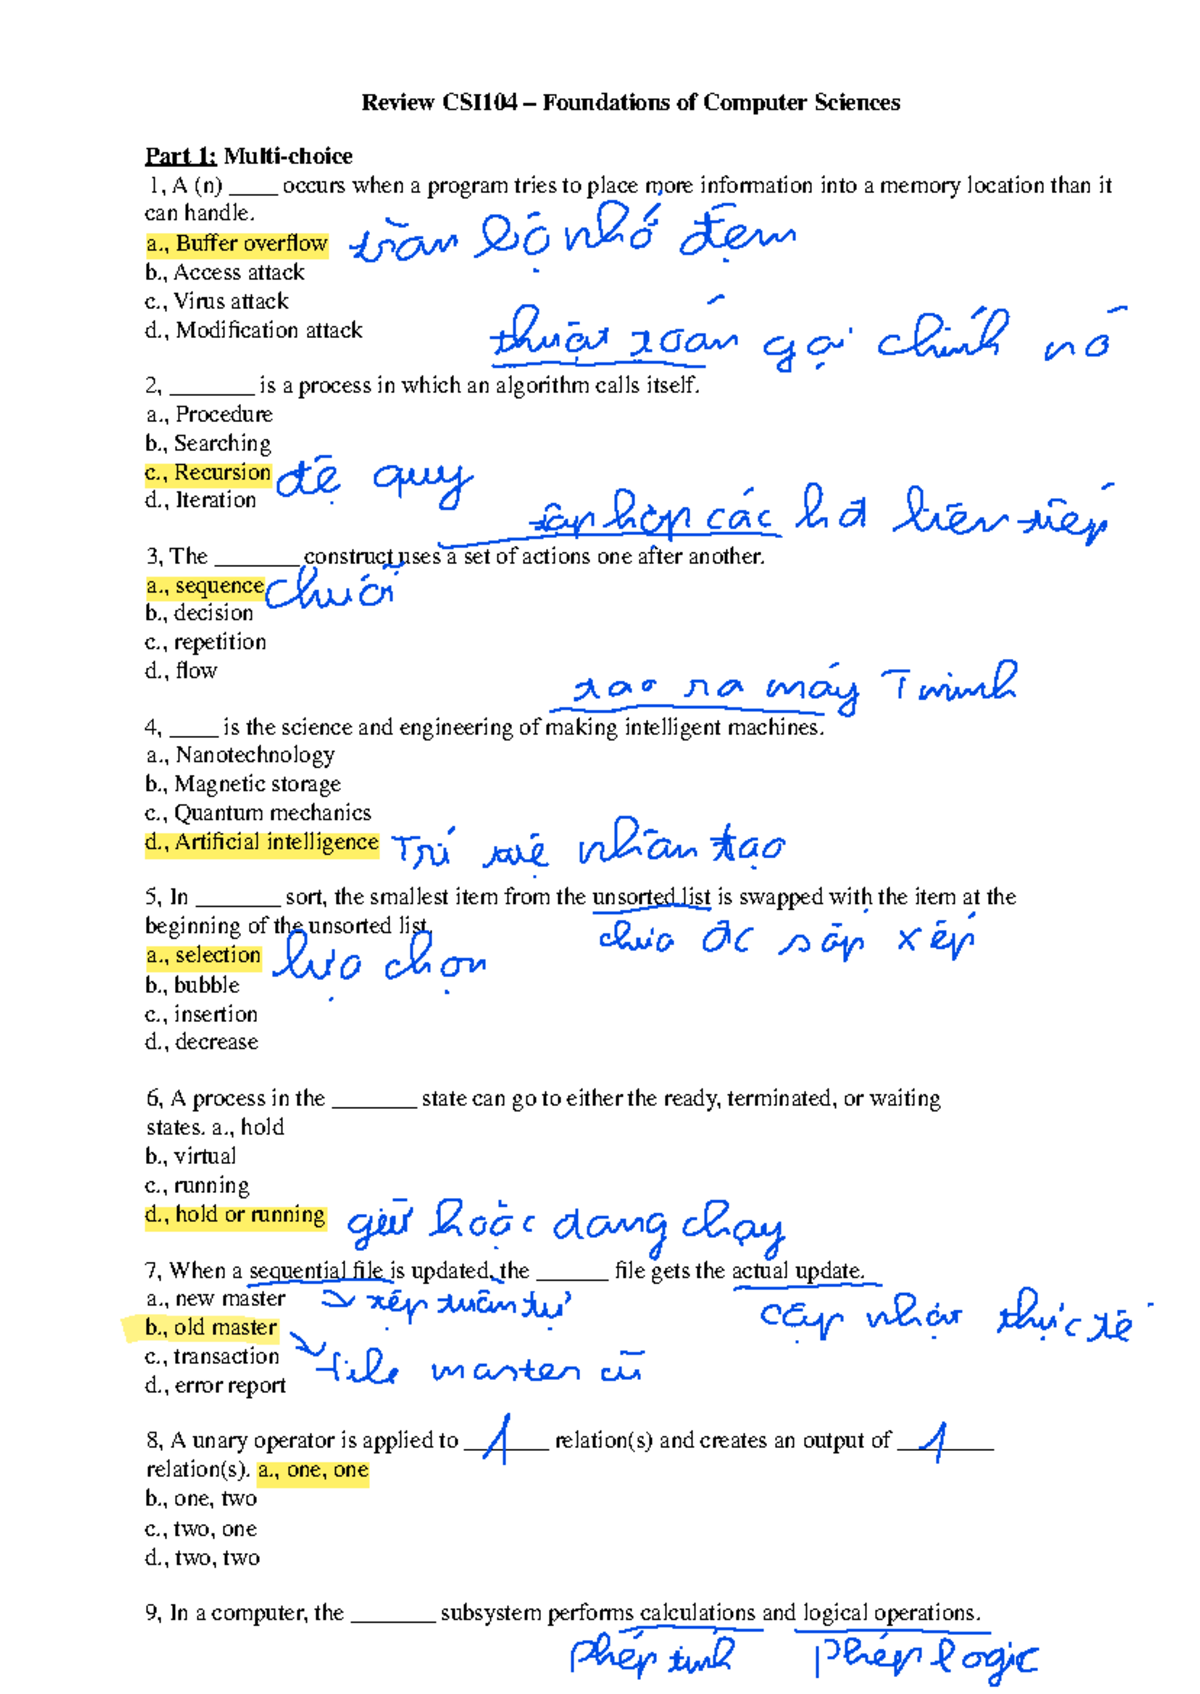 Review CSI104 – Foundations of Computer Sciences
Part 1: Multi-choice
1, A (n) ____ occurs when a program tries to place more information into a memory location than it
can handle.
a., Buffer overflow tràn bộ nhớ đệm
b., Access attack
c., Virus attack
d., Modification attack
thuật toán gọi chính nó
2, _______ is a process in which an algorithm calls itself.
a., Procedure
b., Searching
c., Recursion đệ quy
d., Iteration
tập hợp các hđ liên tiếp
3, The _______ construct uses a set of actions one after another.
a., sequence chuỗi
b., decision
c., repetition
d., flow
tạo ra máy T minh
4, ____ is the science and engineering of making intelligent machines.
a., Nanotechnology
b., Magnetic storage
c., Quantum mechanics
d., Artificial intelligence Trí tuệ nhân tạo
5, In _______ sort, the smallest item from the unsorted list is swapped with the item at the
beginning of the unsorted list.
chưa đc sắp xếp
a., selection lựa chọn
b., bubble
c., insertion
d., decrease
6, A process in the _______ state can go to either the ready, terminated, or waiting
states. a., hold
b., virtual
c., running
d., hold or running giữ hoặc đang chạy
7, When a sequential file is updated, the ______ file gets the actual update.
a., new master xếp tuần tự cập nhật thực tế
b., old master
c., transaction file master cũ
d., error report
8, A unary operator is applied to ___1___ relation(s) and creates an output of ___1____
relation(s). a., one, one
b., one, two
c., two, one
d., two, two
9, In a computer, the _______ subsystem performs calculations and logical operations.
phép tính phép logic